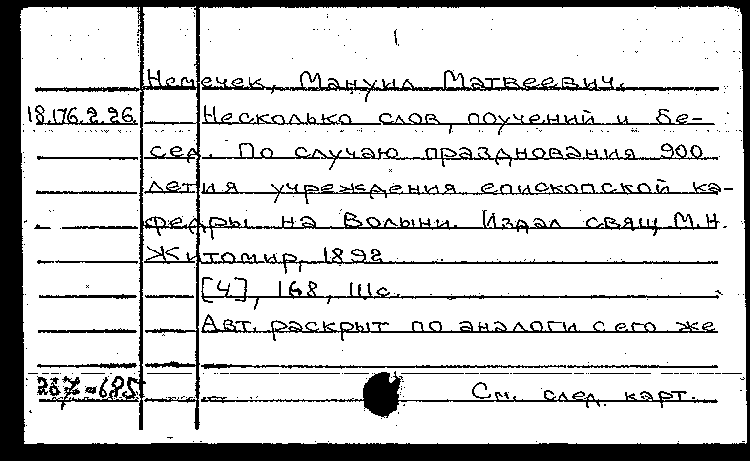 1
Немечек, Мануил Матвеевич.
18.176.2.26. Несколько слов, поучений и бе-
сед. По случаю празднования 900
летия учреждения епископской ка-
федры на Волыни. Издал свящ. М.Н.
Житомир, 1892
[4], 168, IIIс.
Авт. раскрыт по аналоги с его же
287-685 См. след. карт.